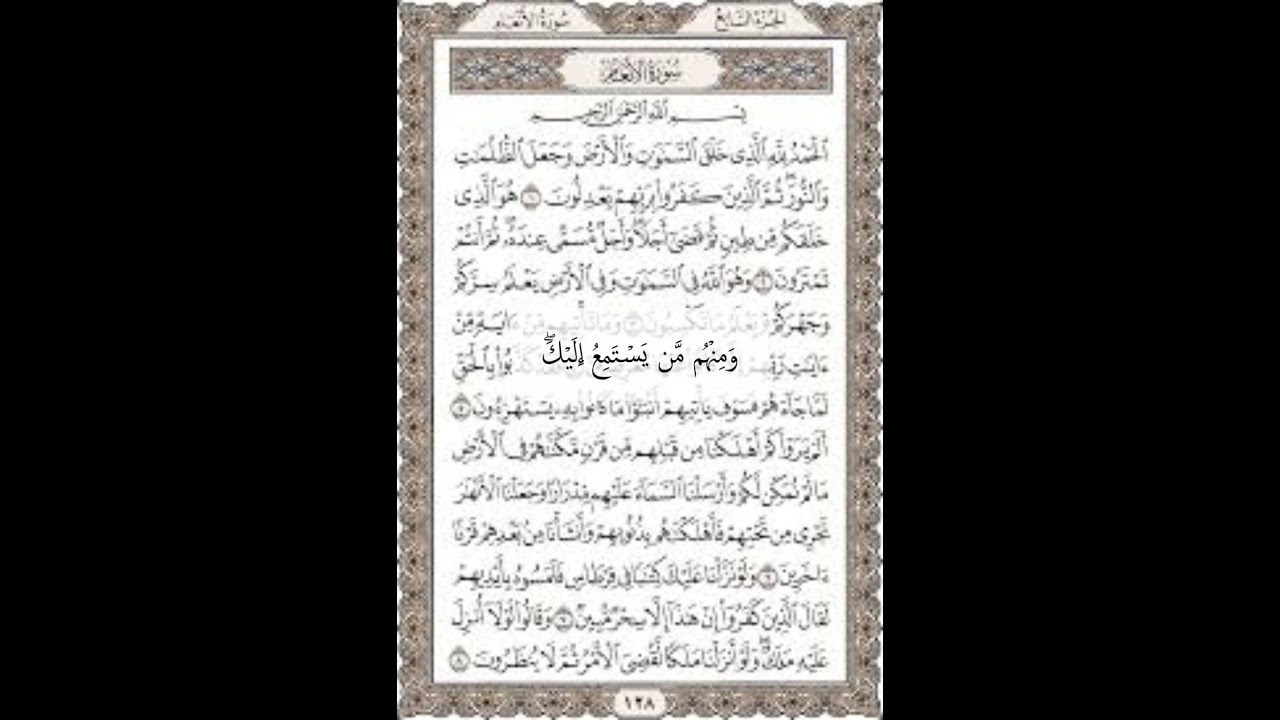 الجزء السابع
سورة الأنعام
سورة الأنعام
بسم الله الرحمن الرحيم
ٱلۡحَمۡدُ لِلَّهِ ٱلَّذِى خَلَقَ ٱلسَّمَٰوَٰتِ وَٱلۡأَرۡضَ وَجَعَلَ ٱلظُّلُمَٰتِ
وَٱلنُّورَۖ ثُمَّ ٱلَّذِينَ كَفَرُوا۟ بِرَبِّهِمۡ يَعۡدِلُونَ ١ هُوَ ٱلَّذِى
خَلَقَكُم مِّن طِينٍ ثُمَّ قَضَىٰٓ أَجَلًاۖ وَأَجَلٌ مُّسَمًّى عِندَهُۥۖ ثُمَّ أَنتُمۡ
تَمۡتَرُونَ ٢ وَهُوَ ٱللَّهُ فِى ٱلسَّمَٰوَٰتِ وَفِى ٱلۡأَرۡضِ يَعۡلَمُ سِرَّكُمۡ
وَجَهۡرَكُمۡ وَيَعۡلَمُ مَا تَكۡسِبُونَ ٣ وَمَا تَأۡتِيهِم مِّنۡ ءَايَةٍ مِّنۡ
وَمِنۡهُم مَّن يَسۡتَمِعُ إِلَيۡكَۖ
ءَايَٰتِ بِٱلۡحَقِّ
لَمَّا جَآءَهُمۡ فَسَوۡفَ يَأۡتِيهِمۡ أَنۢبَٰٓؤُا۟ مَا كَانُوا۟ بِهِۦ يَسۡتَهۡزِءُونَ ٥
أَلَمۡ يَرَوۡا۟ كَمۡ أَهۡلَكۡنَا مِن قَبۡلِهِم مِّن قَرۡنٍ مَّكَّنَّٰهُمۡ فِى ٱلۡأَرۡضِ
مَا لَمۡ نُمَكِّن لَّكُمۡ وَأَرۡسَلۡنَا ٱلسَّمَآءَ عَلَيۡهِم مِّدۡرَارًا وَجَعَلۡنَا ٱلۡأَنۡهَٰرَ
تَجۡرِى مِن تَحۡتِهِمۡ فَأَهۡلَكۡنَٰهُم بِذُنُوبِهِمۡ وَأَنشَأۡنَا مِنۢ بَعۡدِهِمۡ قَرۡنًا
ءَاخَرِينَ ٦ وَلَوۡ نَزَّلۡنَا عَلَيۡكَ كِتَٰبًا فِى قِرۡطَاسٍ فَلَمَسُوهُ بِأَيۡدِيهِمۡ
لَقَالَ ٱلَّذِينَ كَفَرُوٓا۟ إِنۡ هَٰذَآ إِلَّا سِحۡرٌ مُّبِينٌ ٧ وَقَالُوا۟ لَوۡلَآ أُنزِلَ
عَلَيۡهِ مَلَكٌۖ وَلَوۡ أَنزَلۡنَا مَلَكًا لَّقُضِىَ ٱلۡأَمۡرُ ثُمَّ لَا يُنظَرُونَ ٨
١٢٨